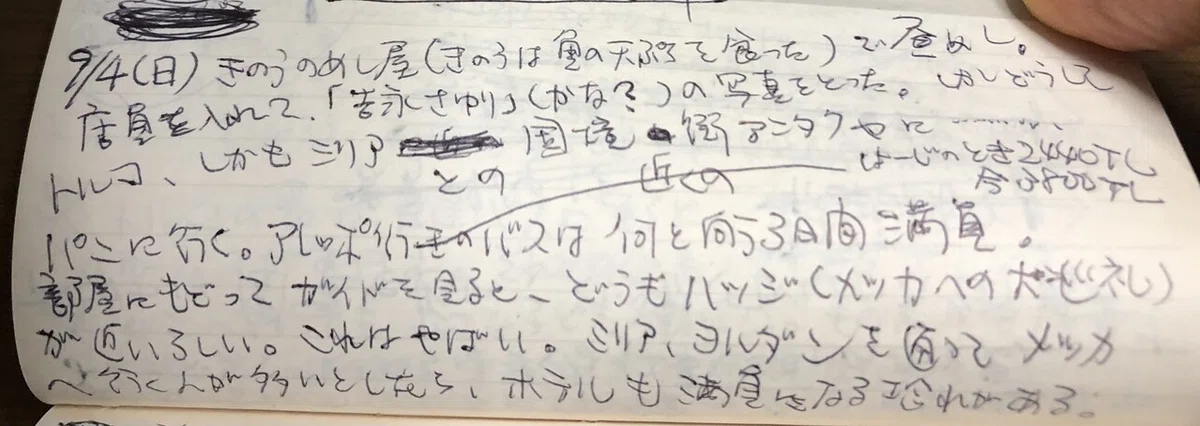 9/4(日) きのうのめし屋(きのうは魚の天ぷらを食った)で昼めし。
店員を入れて、「吉永さゆり」(かな?)の写真をとった。しかしどうして
トルコ、しかもシリアとの国境近くの街アンタクヤに…………、
はーじのとき2440TL
今3800TL
バンに行く。アレッポ行きのバスは何と向う3日間満員。
部屋にもどってガイドを見ると、どうもハッジ(メッカへの大巡礼)
が近いらしい。これはやばい。シリア、ヨルダンを通ってメッカ
へ行く人が多いとしたら、ホテルも満員になる恐れがある。